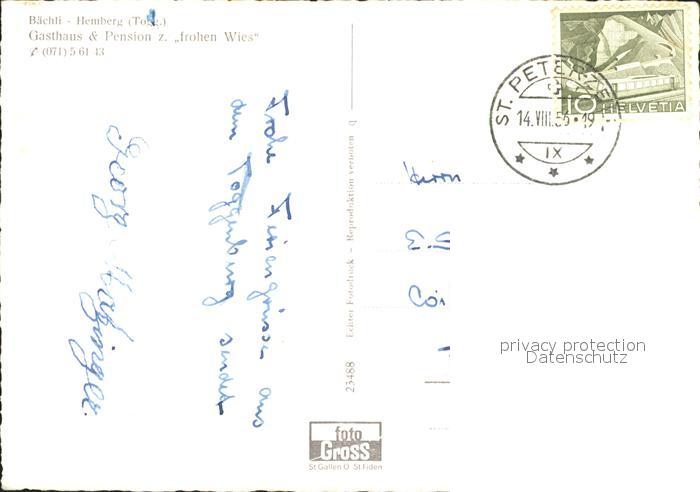 Bächli - Hemberg (Togg.)
Gasthaus & Pension z. „frohen Wies“
(071) 5 61 43
Frohe Feriengrüsse aus
dem Toggenburg sendet
Georg
23488 Echter Fotodruck – Reproduktion verboten
foto
Gross
St Gallen O St Fiden
ST. PETERZE
14.VIII.56·19
IX
10 HELVETIA
Herrn
privacy protection
Datenschutz